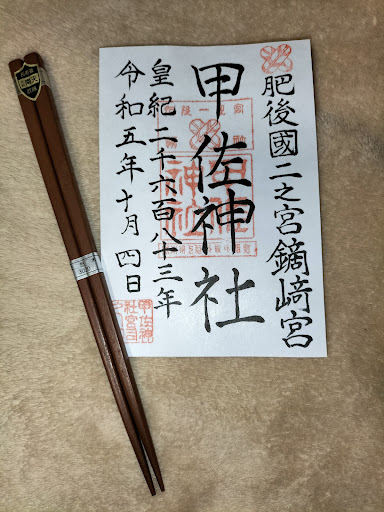 肥後國二之宮鏑﨑宮
甲佐神社
皇紀二千六百八十三年
令和五年十月四日
甲佐神
社宮司